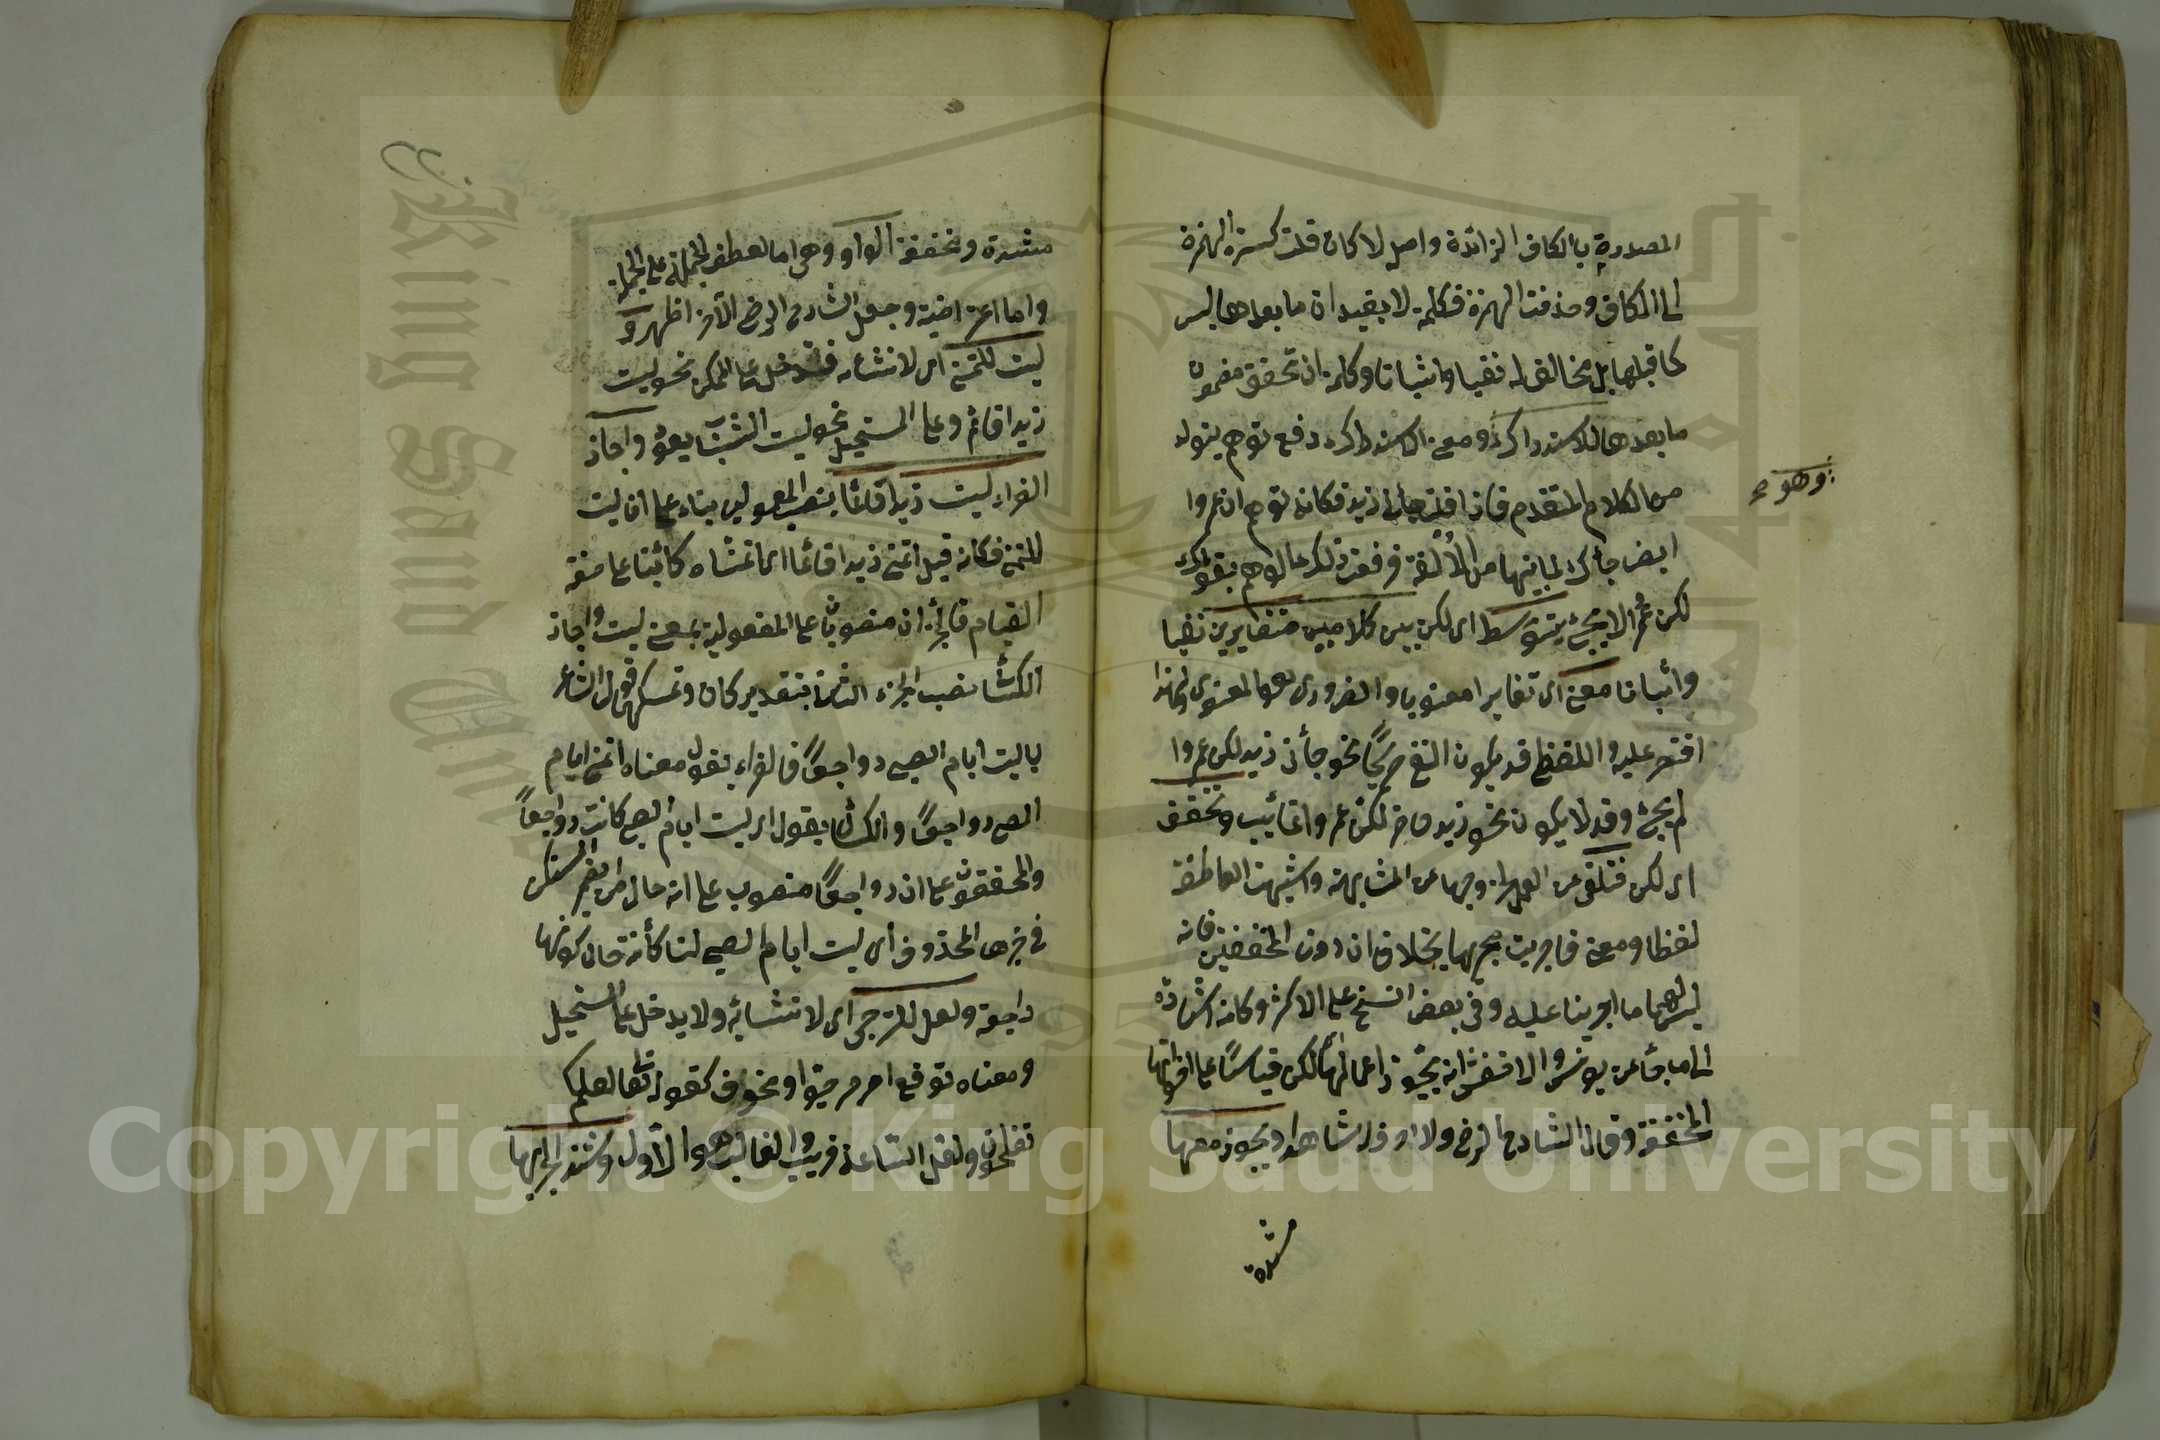 المصدرية بالكاف الزائدة واصل لا كان فنقلت كسرة الهمزة
الى الكاف وحذفت الهمزة فكلمة لا يفيد ان ما بعدها ليس
كما قبلها بل مخالف له نفيا واثباتا وكلمة ان تحقق مضمون
ما بعدها للاستدراك ومعنى الاستدراك دفع توهم يتولد
وهو
من الكلام المتقدم فاذا قلت جاءنى زيد فكانه توهم ان عمروا
ايضا جاءك لما بينهما من الألفة فرفعت ذلك الوهم بقولك
لكن عمرا لا يجئ يتوسط اى لكن بين كلامين متغايرين نفيا
واثباتا معنى اى تغايرا معنويا والضرورى هو المعنوى ولهذا
اقتصر عليه واللفظى قد يكون النفى صريحا نحو جاءنى زيد لكن عمروا
لم يجئ وقد لا يكون نحو زيد حاضر لكن عمروا غائب وتخفف
اى لكن فتلغى عن العمل لخروجها عن المشابهة واشبهت العاطفة
لفظا ومعنى فاجريت مجريها بخلاف ان وان المخففتين فانه
ليس لهما ما اجريتا عليه وفى بعض النسخ على الاكثر وكانه اشارة
الى ما جاء عن يونس والاخفش انه يجوز اعمالها لكن قياسا على اخواتها
المخففة وقال الشارح الرضى ولا اعرف له شاهدا ويجوز معها
مشددة
مشددة ومخففة الواو وهى اما لعطف الجملة على الجملة
واما اعتراضية وجعل الشارح الرضى الاخر اظهر و
ليت للتمنى اى لانشائه فتدخل على الممكن نحو ليت
زيدا قائم وعلى المستحيل نحو ليت الشباب يعود واجاز
الفراء ليت زيدا قائما بنصب المعمولين بناء على ان ليت
للتمنى فكانه قيل اتمنى زيدا قائما اى اتمناه كائنا على صفة
القيام فالجزءان منصوبان على المفعولية بمعنى ليت واجاز
الكسائى نصب الجزء الثانى بتقدير كان وتمسكهما قول الشاعر
يا ليت ايام الصبى رواجعا فالفراء يقول معناه اتمنى ايام
الصبى رواجعا والكسائى يقول اى ليت ايام الصبى كانت رواجعا
والمحققون على ان رواجعا منصوب على انه حال من الضمير المستكن
فى خبرها المحذوف اى ليت ايام الصبى لنا كائنة حال كونها
راجعة ولعل للترجى اى لانشائه ولا يدخل على المستحيل
ومعناه توقع امر مرجو او مخوف كقوله تعالى لعلكم
تفلحون ولعل الساعة قريب والغالب هو الاول وشذ الجر بها
Copyright © King Saud University
King Saud University
1957